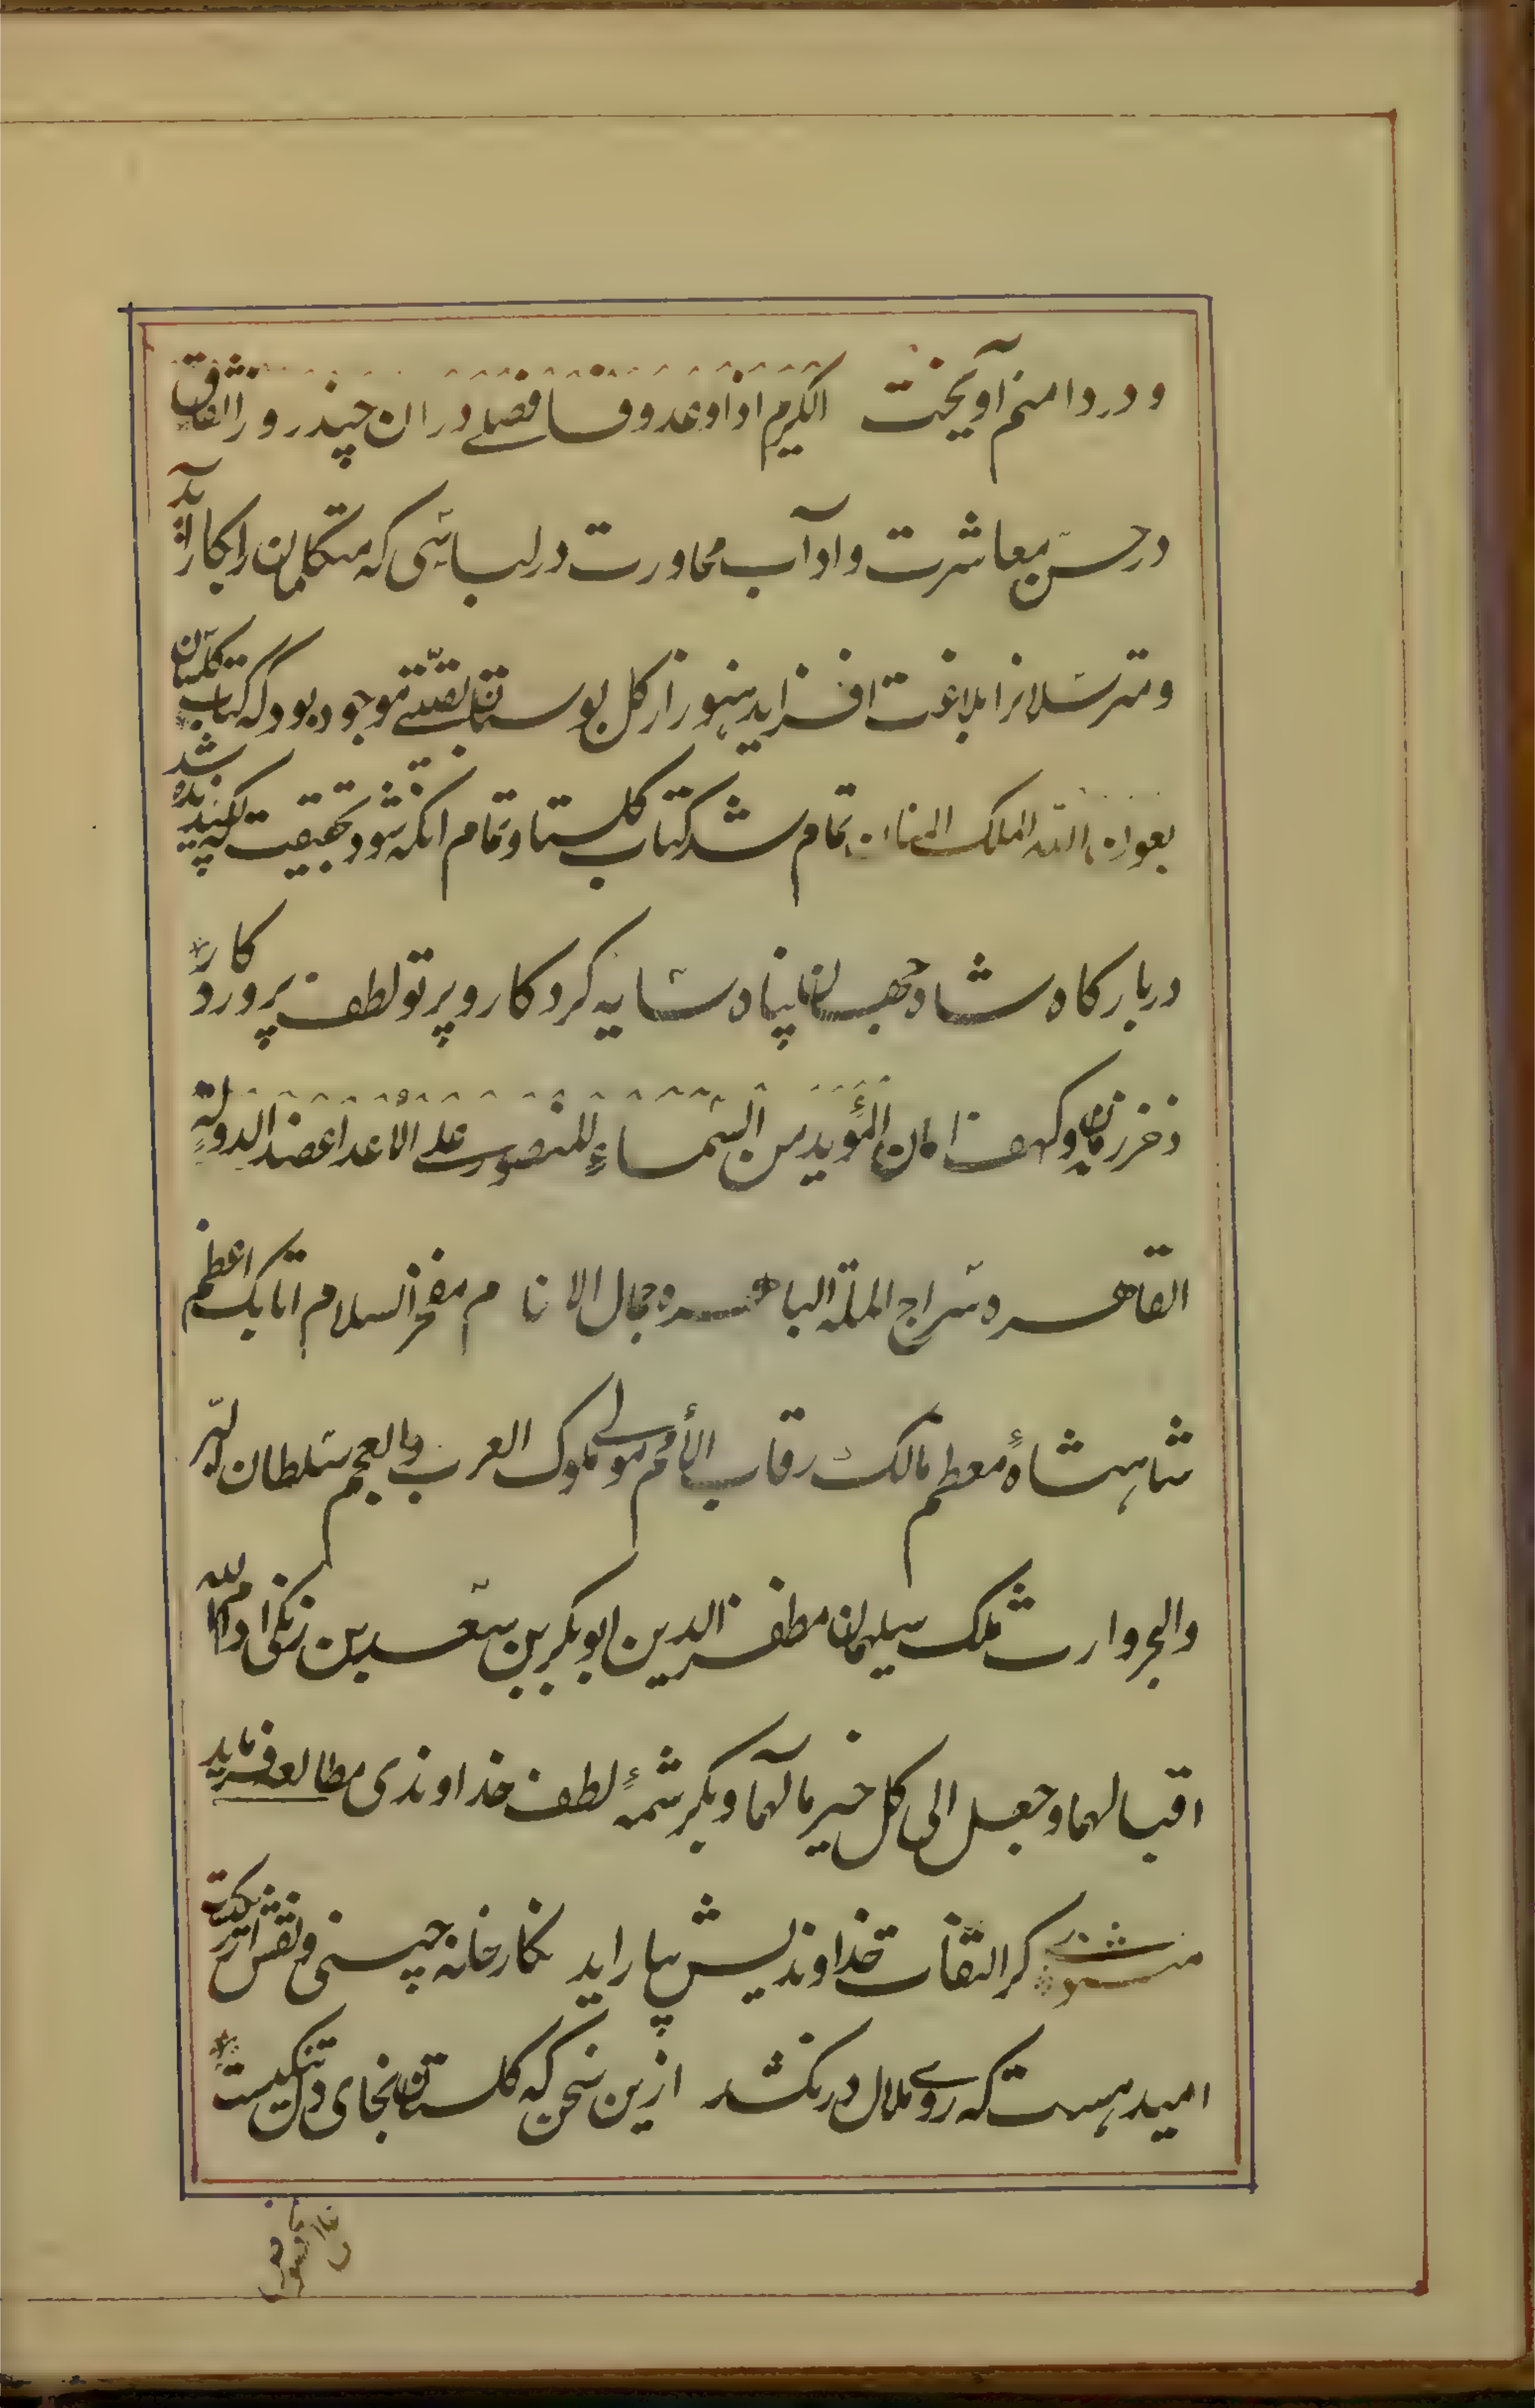 و در دامنم آویخت الکریم اذا وعد وفا فصلے دران چند روز اتفاق
در حسن معاشرت و اداب محاورت در لباسی که متکلمان را بکار آید
و مترسلانرا بلاغت افزاید هنوز از کل بوستان بقیتے موجود بود که کتاب کلستان
بعون الله الملک المنان تمام شد کتاب کلستا و تمام انکه شود بحقیقت که پسندیده شد
در بارکاه شاه جهان پناه سایه کردکار و پرتو لطف پروردکار
ذخر زمان و کهف امان المؤید من السماء المنصور علے الاعدا عضد الدولة
القاهره سراج الملة الباهره جمال الانام مفخر السلام اتابک اعظم
شاهنشاه معظم مالک رقاب الأمم مولی ملوک العرب والعجم سلطان البر
والبحر وارث ملک سیلیمان مظفر الدین ابوبکر بن سعد بن زنکی ادام الله
اقبالهما و جعل الی کل خیر مالهما و بکرشمۀ لطف خداوندی مطالعه فرماید
مثنوی کر التفات خداوندیش بیاراید نکارخانه چینی و نقش ارژنکیست
امید هست که روے ملال در نکشد ازین سخن که کلستان نجای دل تنکیست